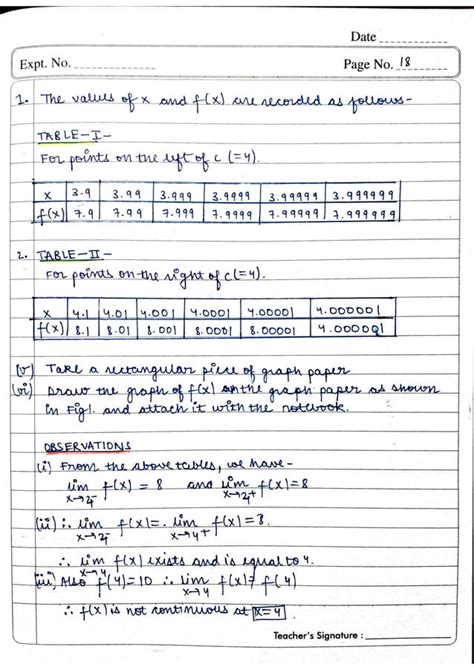 Date
Expt. No.
Page No. 18
1. The values of x and f(x) are recorded as follows-
TABLE-I-
For points on the left of c (=4).
x 3.9 3.99 3.999 3.9999 3.99999 3.999999
f(x) 7.9 7.99 7.999 7.9999 7.99999 7.999999
2. TABLE-II-
For points on the right of c (=4).
x 4.1 4.01 4.001 4.0001 4.00001 4.000001
f(x) 8.1 8.01 8.001 8.0001 8.00001 4.000001
(v) Take a rectangular piece of graph paper
(vi) Draw the graph of f(x) on the graph paper as shown
in Fig1. and attach it with the notebook.
OBSERVATIONS
(i) From the above tables, we have-
lim f(x) = 8 and lim f(x)=8
x→4- x→4+
(ii) ∴ lim f(x)=. lim f(x)=8.
x→4- x→4+
∴ lim f(x) exists and is equal to 4.
x→4
(iii) Also f(4)=10 ∴ lim f(x)≠ f(4)
x→4
∴ f(x) is not continuous at x=4
Teacher's Signature :